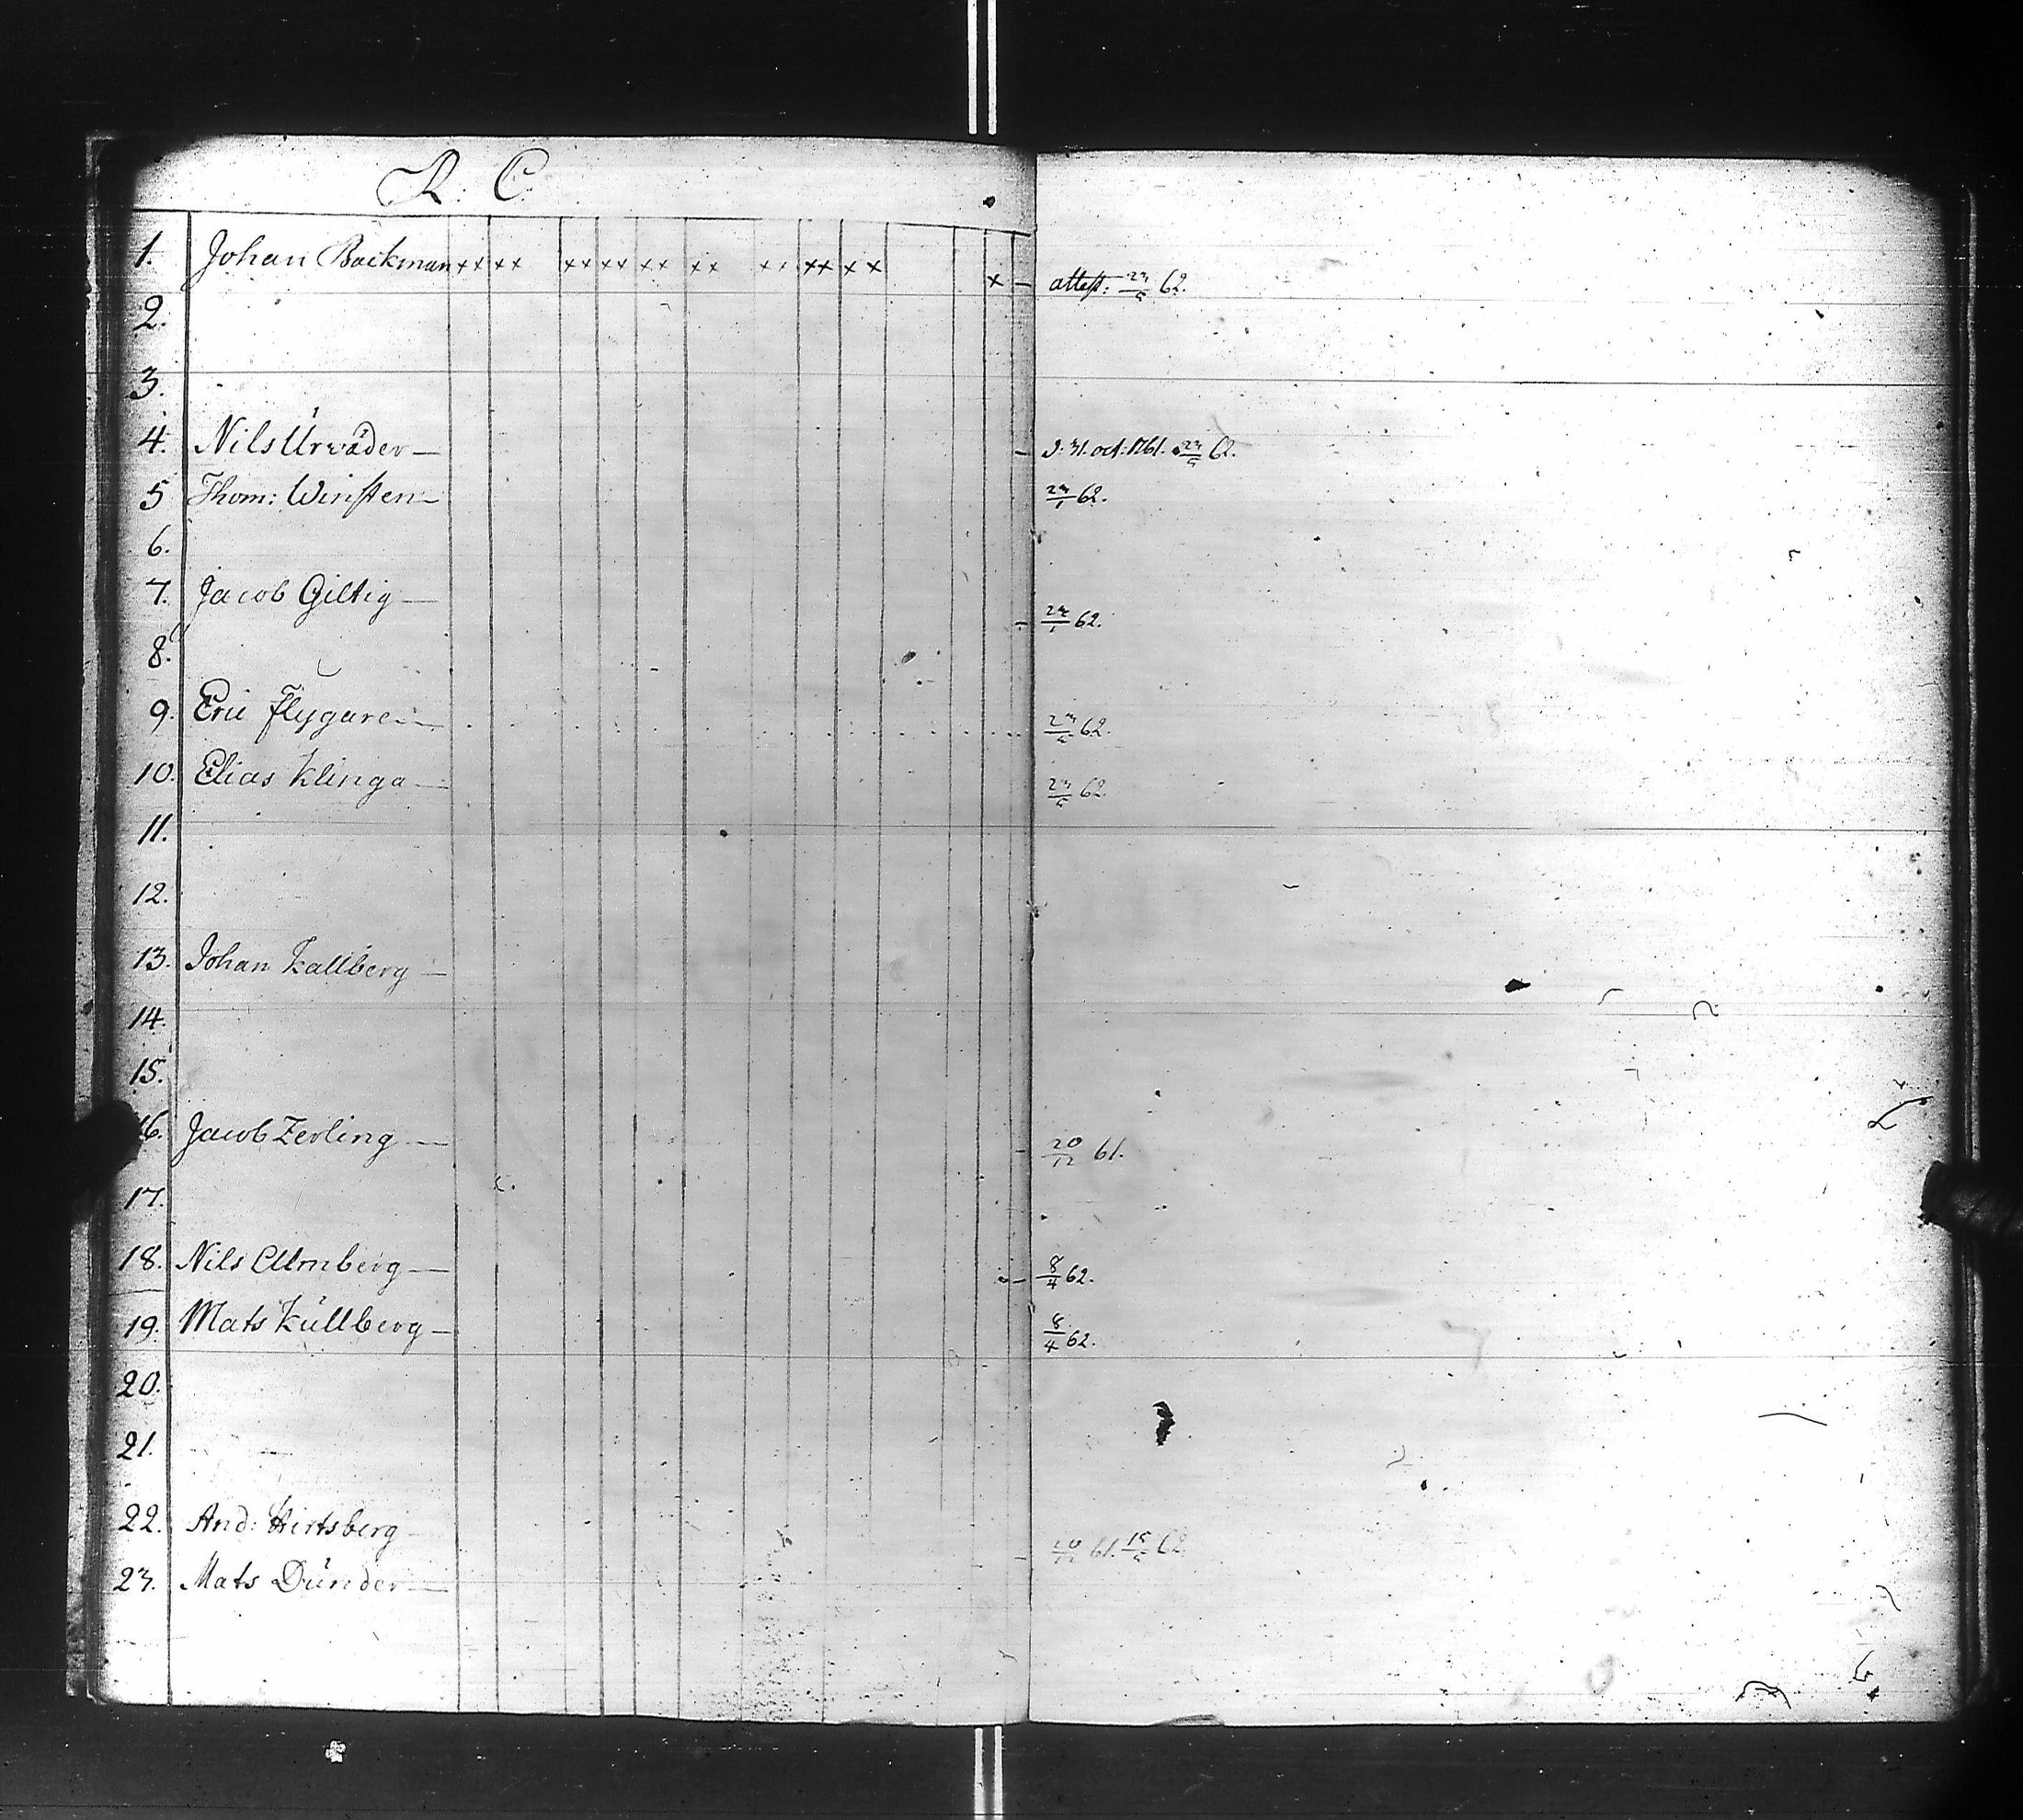 R. C.
1. Johan Backman ×× ×× ×× ×× ×× ×× ×× ×× ×× × – attest: 23/5 62.
2.
3.
4. Nils Urväder — – d: 31. oct: 1761. 23/5 62.
5 Thom: Winsten — 23/5 62.
6.
7. Jacob Giltig — – 23/5 62.
8.
9. Eric Flygare — 23/5 62.
10. Elias Klinga — 23/5 62.
11.
12.
13. Johan Kallberg —
14.
15.
16. Jacob Zerling — – 20/12 61.
17.
18. Nils Almberg — – 8/4 62.
19. Mats Kullberg — 8/4 62.
20.
21.
22. And: Hertsberg – 20/12 61. 15/5 62
23. Mats Dunder —